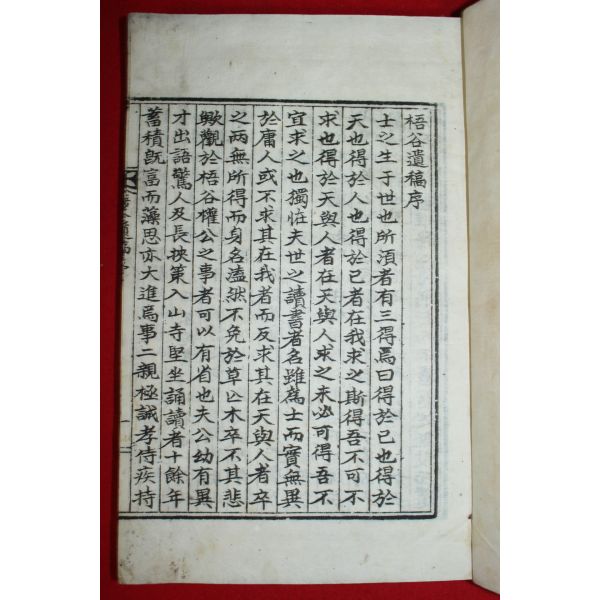 梧谷遺稿序
士之生于世也所須者有三得焉曰得於己也得於
天也得於人也得於己者在我求之斯得吾不可不
求也得於天與人者在天與人求之未必可得吾不
宜求之也獨恠夫世之讀書者名雖爲士而實無異
於庸人或不求其在我者而反求其在天與人者卒
之兩無所得而身名溘然不免於草亡木卒不其悲
歟觀於梧谷權公之事者可以有省也夫公幼有異
才出語驚人及長挾策入山寺堅坐誦讀者十餘年
蓄積旣富而藻思亦大進焉事二親極誠孝侍疾持